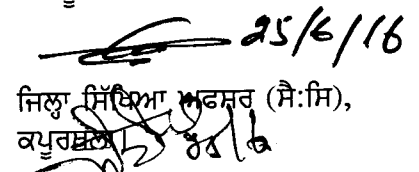 25/6/16
ਜਿਲ੍ਹਾ ਸਿੱਖਿਆ ਅਫਸਰ (ਸੈ:ਸਿ),
ਕਪੂਰਥਲਾ।